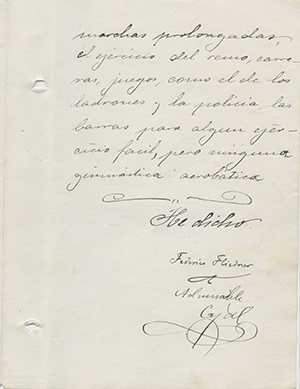 marchas prolongadas,
el ejercicio del remo, carre-
ras, juegos, como el de los
ladrones y la policia las
barras para algun ejer-
cicio facil, pero ninguna
gimnástica acrobática
He dicho
Federico Fliedner
Cajal